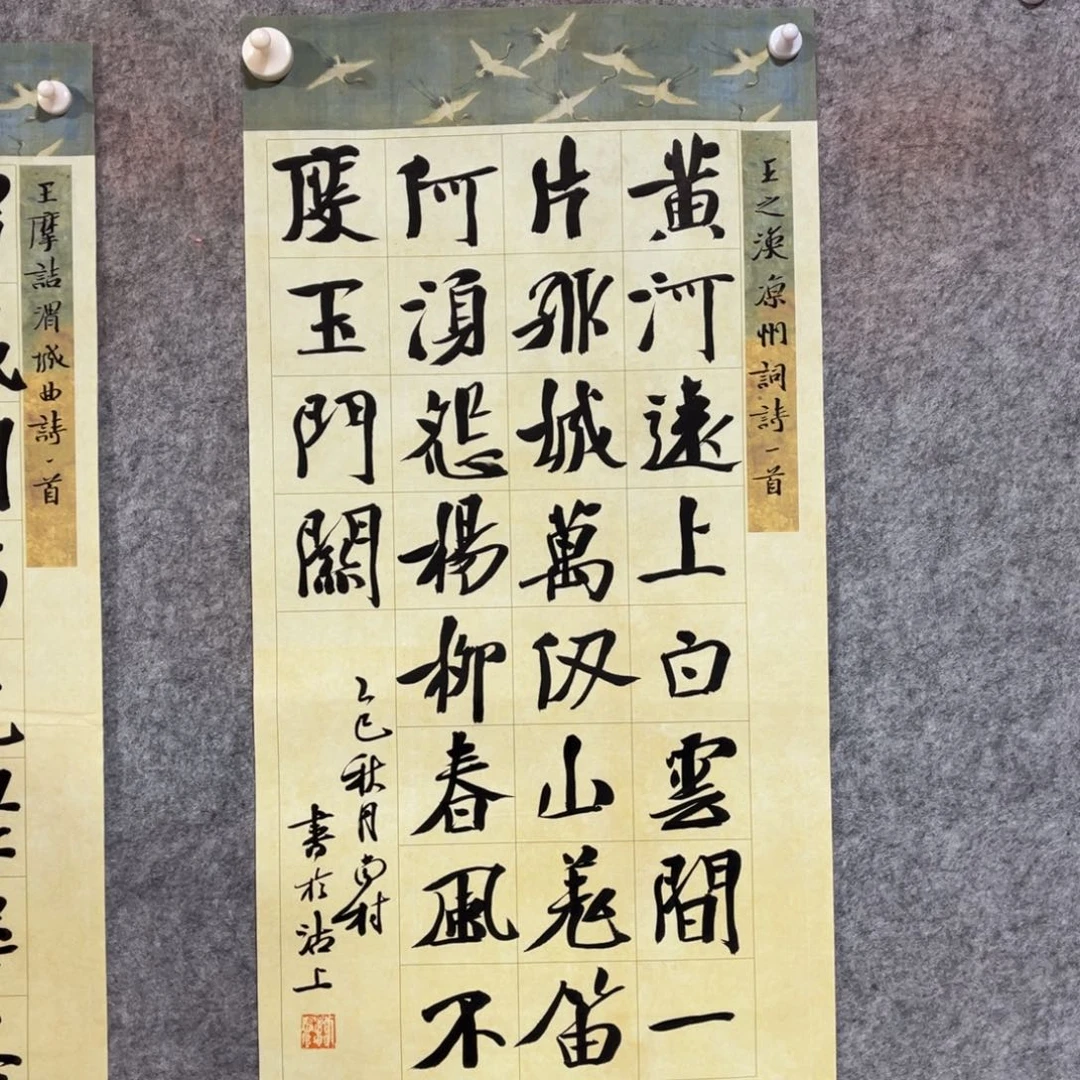 王之渙涼州詞詩一首
黄河遠上白雲間一
片孤城萬仞山羌笛
何須怨楊柳春風不
度玉門關
乙巳秋月尚村
書於沽上
王摩詰渭城曲詩一首